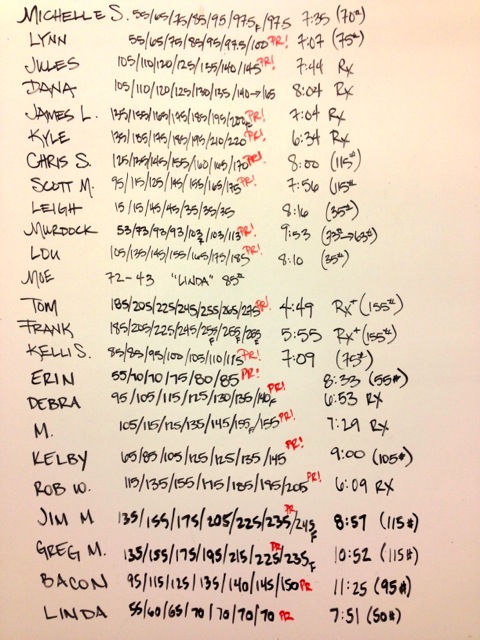 MICHELLE S. 55/65/75/85/95/97.5F/97.5 7:35 (70#)
LYNN 55/65/75/85/95/97.5/100 PR! 7:07 (75#)
JULES 105/110/120/125/135/140/145 PR! 7:44 RX
DANA 105/110/120/125/130/135/140→165 8:04 RX
JAMES L. 135/155/165/175/185/195/202F PR! 7:04 RX
KYLE 135/185/175/185/195/210/220 PR! 6:34 RX
CHRIS S. 125/135/145/155/160/165/170 PR! 8:00 (115#)
SCOTT M. 95/115/125/145/155/165/175 PR! 7:56 (115#)
LEIGH 15/15/45/45/35/35/35 8:16 (35#)
MURDOCK 53/73/93/93/103F/103/113 PR! 9:53 (73#→63#)
LOU 105/135/145/155/165/175/185 PR! 8:10 (35#)
MOE 72-43 "LINDA" 85#
TOM 185/205/225/245/255/265/275 PR! 4:49 RX+ (155#)
FRANK 185/205/225/245/255F/255F/255F 5:55 RX+ (155#)
KELLI S. 85/85/95/100/105/110/115 PR! 7:09 (75#)
ERIN 55/70/70/75/80/85 PR! 8:33 (55#)
DEBRA 95/105/115/125/130/135/140F PR! 6:53 RX
M. 105/115/125/135/145/155F/155 PR! 7:29 RX
KELBY 65/85/105/125/125/135/145 PR! 9:00 (105#)
ROB W. 115/135/155/175/185/195/205 PR! 6:09 RX
JIM M 135/155/175/205/225/235/245F PR 8:57 (115#)
GREG M. 135/155/175/195/215/225/235F PR 10:52 (115#)
BACON 95/115/125/135/140/145/150 PR 11:25 (95#)
LINDA 55/60/65/70/70/70/70 PR 7:51 (50#)